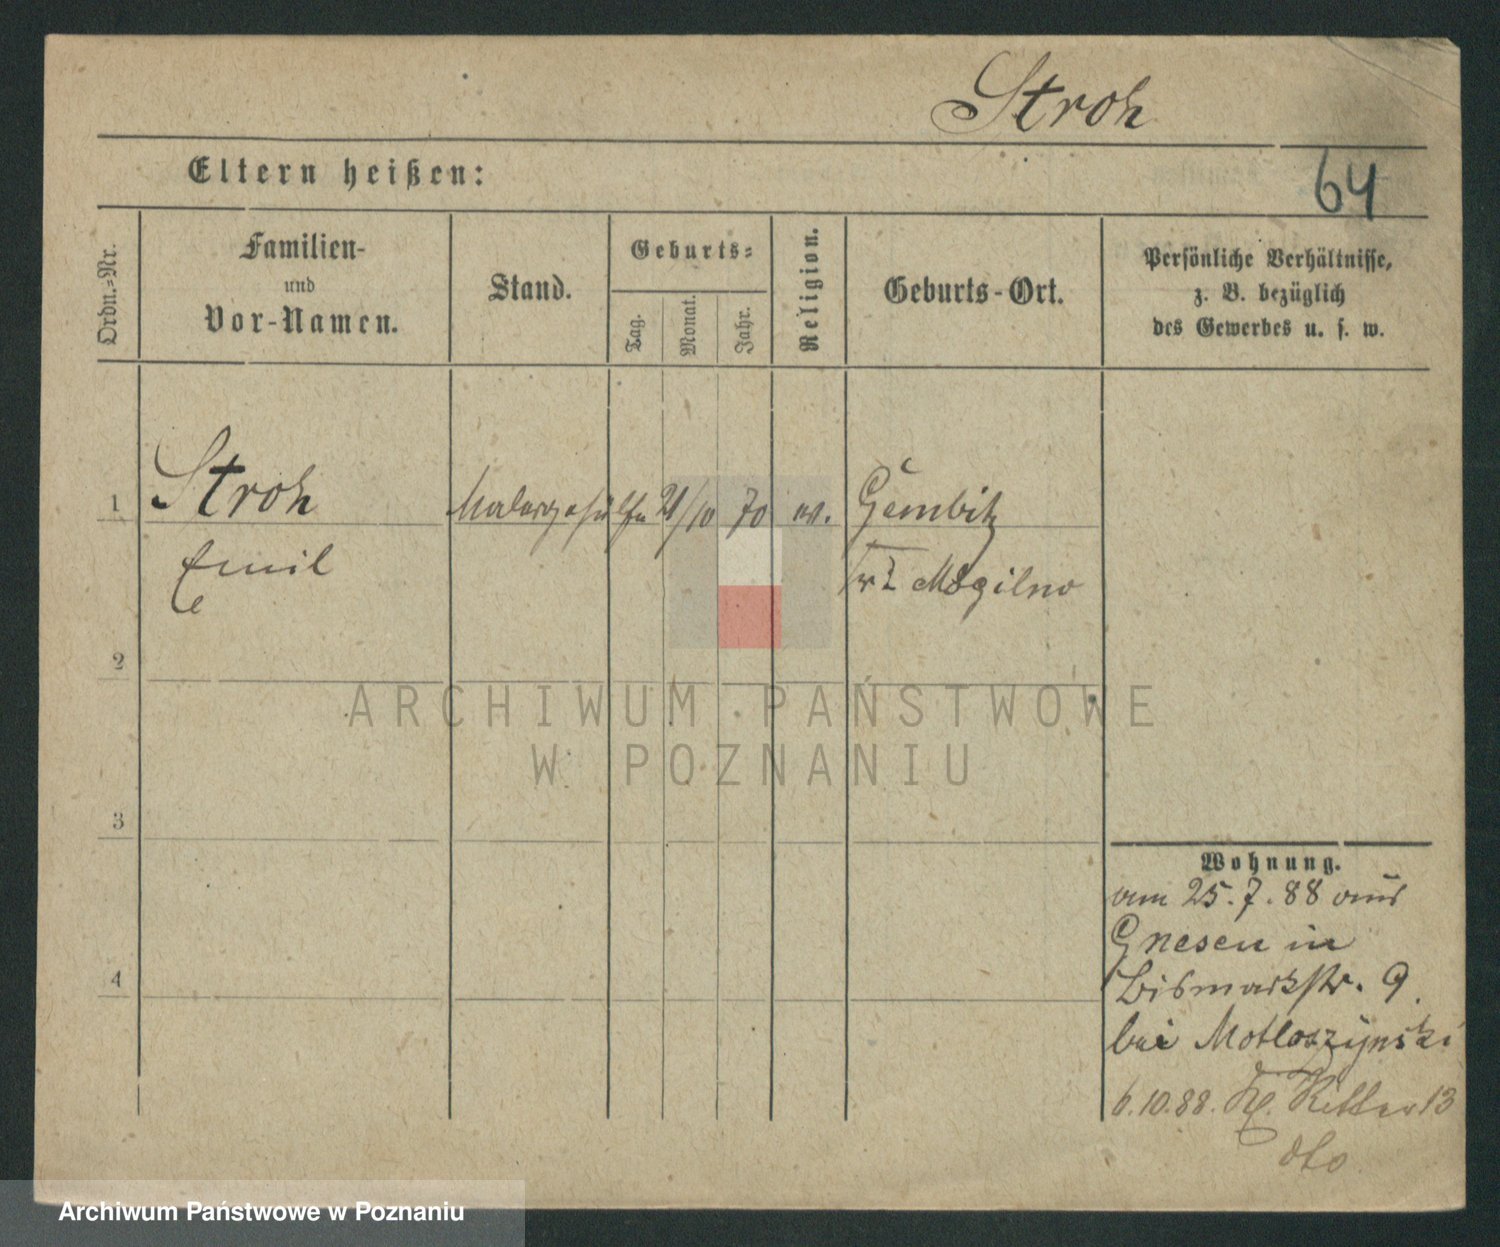 Stroh
Eltern heißen:
64
Ordn.-Nr.
Familien-
und
Vor-Namen.
Stand.
Geburts-
Tag.
Monat.
Jahr.
Religion.
Geburts-Ort.
Persönliche Verhältnisse,
z. B. bezüglich
des Gewerbes u. s. w.
1
Stroh
Malergehülfe
21/10
70
ev.
Gembitz
Emil
Mogilno
2
ARCHIWUM PAŃSTWOWE
W POZNANIU
3
Wohnung.
am 25.7.88 aus
Gnesen in
4
Bismarkstr. 9.
bei Motloszynski
6.10.88. Kl. Ritter 13
dto
Archiwum Państwowe w Poznaniu